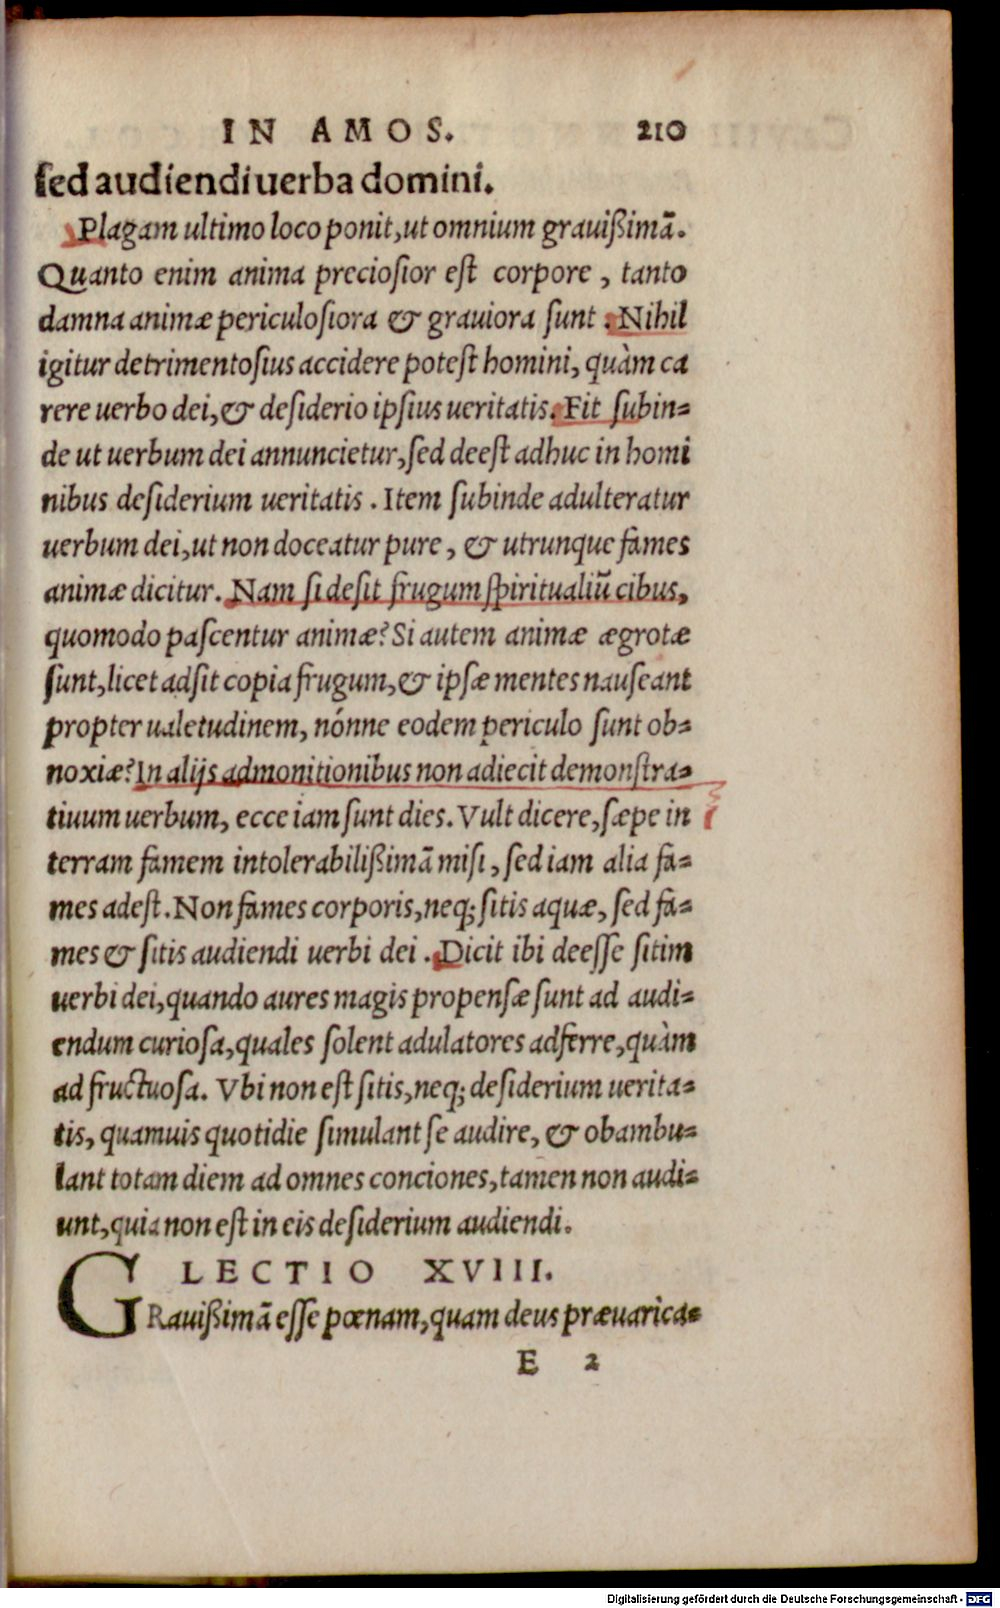 IN AMOS. 210
sed audiendi uerba domini.
Plagam ultimo loco ponit, ut omnium grauißimā.
Quanto enim anima preciosior est corpore, tanto
damna animæ periculosiora & grauiora sunt. Nihil
igitur detrimentosius accidere potest homini, quàm ca
rere uerbo dei, & desiderio ipsius ueritatis. Fit subin=
de ut uerbum dei annuncietur, sed deest adhuc in homi
nibus desiderium ueritatis. Item subinde adulteratur
uerbum dei, ut non doceatur pure, & utrunque fames
animæ dicitur. Nam si desit frugum spiritualiū cibus,
quomodo pascentur animæ? Si autem animæ ægrotæ
sunt, licet adsit copia frugum, & ipsæ mentes nauseant
propter ualetudinem, nónne eodem periculo sunt ob=
noxiæ? In alijs admonitionibus non adiecit demonstra=
tiuum uerbum, ecce iam sunt dies. Vult dicere, sæpe in
terram famem intolerabilißimā misi, sed iam alia fa=
mes adest. Non fames corporis, neq; sitis aquæ, sed fa=
mes & sitis audiendi uerbi dei. Dicit ibi deesse sitim
uerbi dei, quando aures magis propensæ sunt ad audi=
endum curiosa, quales solent adulatores adferre, quàm
ad fructuosa. Vbi non est sitis, neq; desiderium uerita=
tis, quamuis quotidie simulant se audire, & obambu=
lant totam diem ad omnes conciones, tamen non audi=
unt, quia non est in eis desiderium audiendi.
LECTIO XVIII.
GRauißimā esse pœnam, quam deus præuarica=
E 2
Digitalisierung gefördert durch die Deutsche Forschungsgemeinschaft - DFG